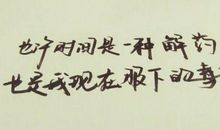 也许时间是一种解药
也是我现在服下的毒